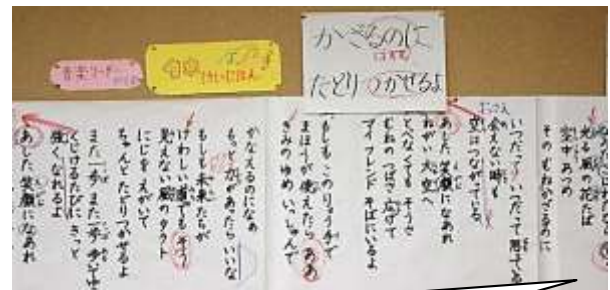 かざるのに
たどりつかせるよ
光る風の花たば
空中 あつめ
その むねかざるのに
いつだって いつだって
会えない時も
空はつながっている
あした 笑顔になあれ
ねがい 大空へ
とべなくても そうさ
むねの つばさ 広げて
マイフレンド そばにいるよ
もしも このりょう手で
まほうが 使えたら ああ
きみのゆめ いっしゅんで
かなえるのになぁ
もっと 力があったら いいな
もしも 未来たちが
けわしい道でも そう
見えない風のタクト
にじを えがいて
ちゃんと たどりつかせるよ
また一歩 また一歩
くじけるたびに きっと
強くなれるよ
あした 笑顔になあれ